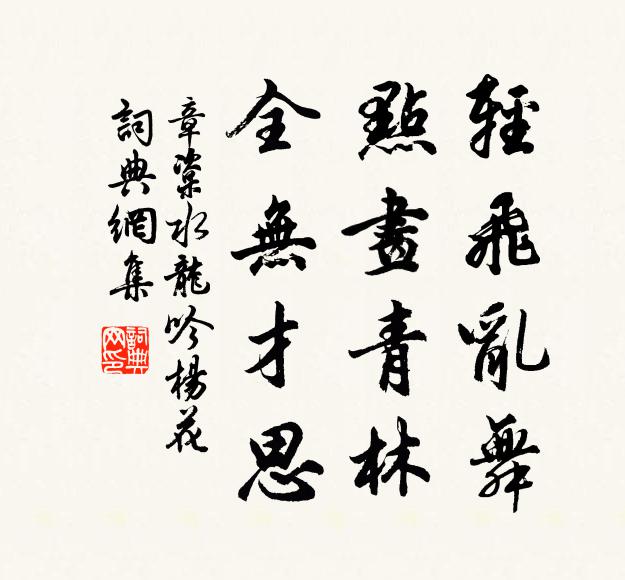 輕飛亂舞
點畫青林
全無才思
章楶水龍吟楊花
詞典網集
詞典網印